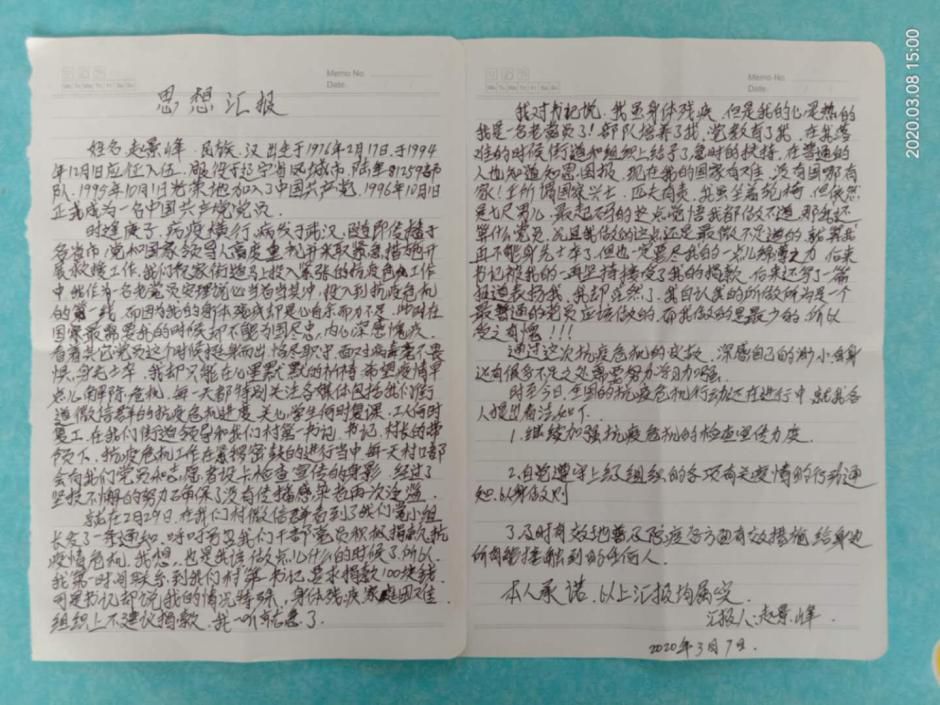 Memo No.
Date.
Mo Tu We Th Fr Sa Su
思想汇报
姓名赵景峰 民族.汉 出生于1976年2月17日,于1994
年12月日应征入伍.服役于辽宁省凤城市,陆军81259部
队.1995年10月1日光荣地加入了中国共产党,1996年10月1日
正式成为一名中国共产党党员.
时逢庚子,病疫横行,病发于武汉,随即传播于
各省市,党和国家领导人高度重视并采取紧急措施开
展救援工作,我们张家街道马上投入紧张的抗疫危机工作
中,我作为一名老党员安理说也当首当其冲,投入到抗疫危机
的第一线,而因为我的身体残疾却是心有余而力不足,此时在
国家最需要我的时候却不能为国尽忠,内心深感愧疚.
看着其它党员这个时候挺身而出,恪尽职守,面对病毒毫不畏
惧,身先士卒,我却只能在心里默默的祈祷,希望疫情早
点儿解除危机,每一天都特别关注各媒体包括我们街
道微信群的抗疫危机进展,关心学生何时复课,工人何时
复工,在我们街道领导和我们村第一书记,书记,村长的带
领下,抗疫危机工作在紧锣密鼓的进行当中每一天村口都
会有我们党员和志愿者设卡检查宣传的身影,经过了
坚持不懈的努力确保了没有传播感染
就在2月29日,在我们村微信群看到了我们党小组
长发了一条通知,呼吁有员我们才部党员积极捐款抗
疫情危机,我想,也是我该做点儿什么的时候了所以
我第一时间联系到我们村第一书记要求捐款100块钱,
可是书记却说我的情况特殊,身体残疾,家庭困难
组织上不建议捐款,我一听就急了.
Memo No.
Date.
Mo Tu We Th Fr Sa Su
我对书记说,我虽身体残疾,但是我的心是热的
我是一名老党员了!部队培养了我,党教育了我,在我落
难的时候街道和组织上给予了急时的扶持,在普通的
人也知道知恩图报,现在我的国家有难,没有国那有
家!正所谓国家兴亡,匹夫有责,我虽坐着轮椅,但依然
是七尺男儿,最起码的这点觉悟我都做不道,那我还
算什么党员,况且我做的这点还是最微不足道的,就算我
再不能身先士卒了,但也一定要尽我的一点儿绵薄之力,后来
书记被我的一再坚持接受了我的捐款,后来还写了一篇
报道表扬我,我却茫然了,我自认我的所做所为是一个
最普通的党员应该做的,而我做的是最少的,所以
受之有愧!!!
通过这次抗疫危机的实教,深感自己的渺小自身
还有很多不足之处需要努力学习加强.
时至今日,全国的抗疫危机行动还在进行中,就我各
人提出看法如下.
1.继续加强抗疫危机的检查宣传力度.
2.自觉遵守上级组织的各项有关疫情的行动通
知,以身做则
3.及时有效地普及防疫各方面有效措施给身边
所有能接触到的任何人.
本人承诺,以上汇报均属实.
汇报人.赵景峰.
2020年3月7日.
2020.03.08 15:00